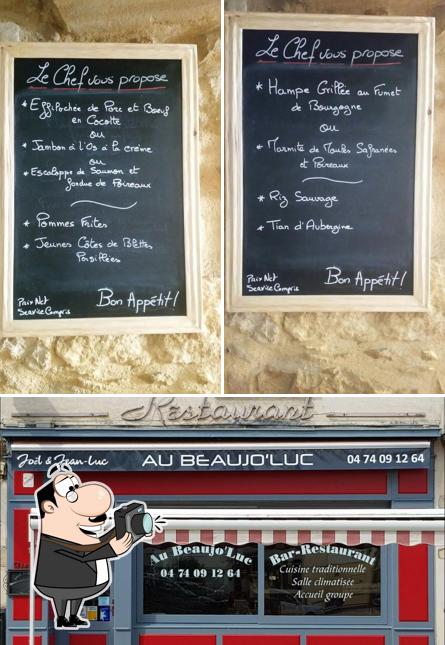 Le Chef vous propose
* Effilochée de Porc et Bœuf
en Cocotte
ou
* Jambon à l'Os à la crème
ou
* Escaloppe de Saumon et
fondue de Poireaux
* Pommes Frites
* Jeunes Côtes de Bettes
Persillées
Prix Net
Service Compris
Bon Appétit!
Le Chef vous propose
* Hampe Grillée au Fumet
de Bourgogne
ou
* Marmite de Moules Safranées
et Poireaux
* Riz Sauvage
* Tian d'Aubergine
Prix Net
Service Compris
Bon Appétit!
Restaurant
Joël & Jean-Luc
AU BEAUJO'LUC
04 74 09 12 64
Au Beaujo'Luc
04 74 09 12 64
Bar-Restaurant
Cuisine traditionnelle
Salle climatisée
Accueil groupe